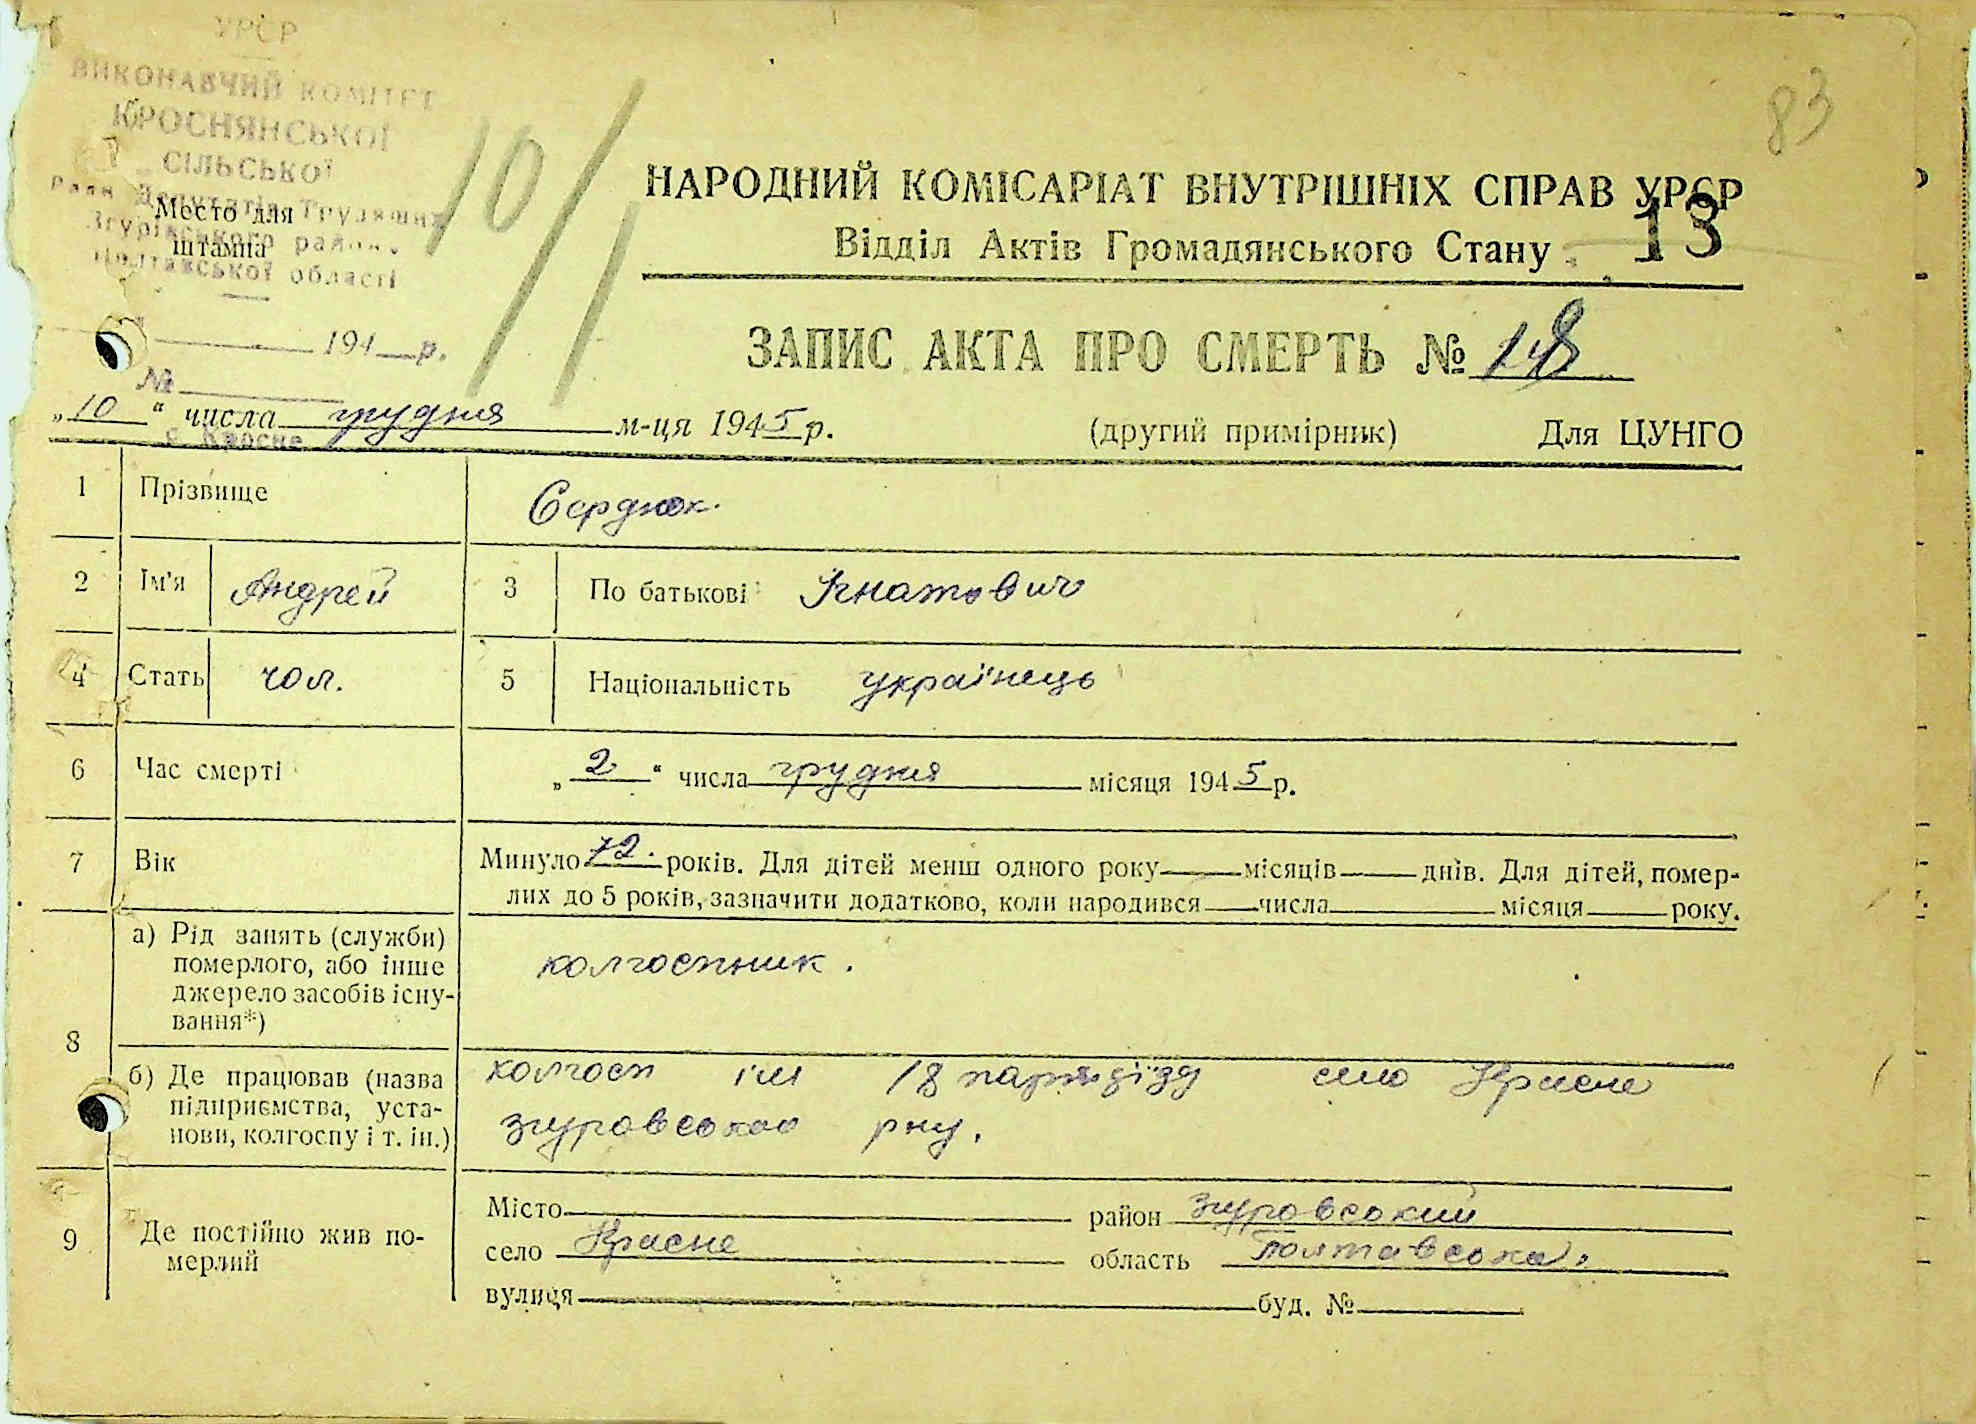 УРСР
ВИКОНАВЧИЙ КОМІТЕТ
КРОСНЯНСЬКОЇ
СІЛЬСЬКОЇ
Ради Депутатів Трудящих
Место для
Згурівського району
штампа
Полтавської області
194 р.
№
с. Кросне
10/1
83
НАРОДНИЙ КОМІСАРІАТ ВНУТРІШНІХ СПРАВ УРСР
Відділ Актів Громадянського Стану
13
ЗАПИС АКТА ПРО СМЕРТЬ № 18
„10“ числа грудня м-ця 1945 р.
(другий примірник) Для ЦУНГО
1 Прізвище Сердюк.
2 Ім'я Андрей 3 По батькові Ігнатович
4 Стать чол. 5 Національність українець
6 Час смерті „2“ числа грудня місяця 1945 р.
7 Вік Минуло 72. років. Для дітей менш одного року місяців днів. Для дітей, помер-
лих до 5 років, зазначити додатково, коли народився числа місяця року.
8 а) Рід занять (служби)
померлого, або інше
джерело засобів існу-
вання*)
колгоспник.
б) Де працював (назва
підприємства, уста-
нови, колгоспу і т. ін.)
колгосп ім 18 партзїзду село Красне
згуровського рну.
9 Де постійно жив по-
мерлий
Місто район згуровський
село Красне область Полтавська.
вулиця буд. №